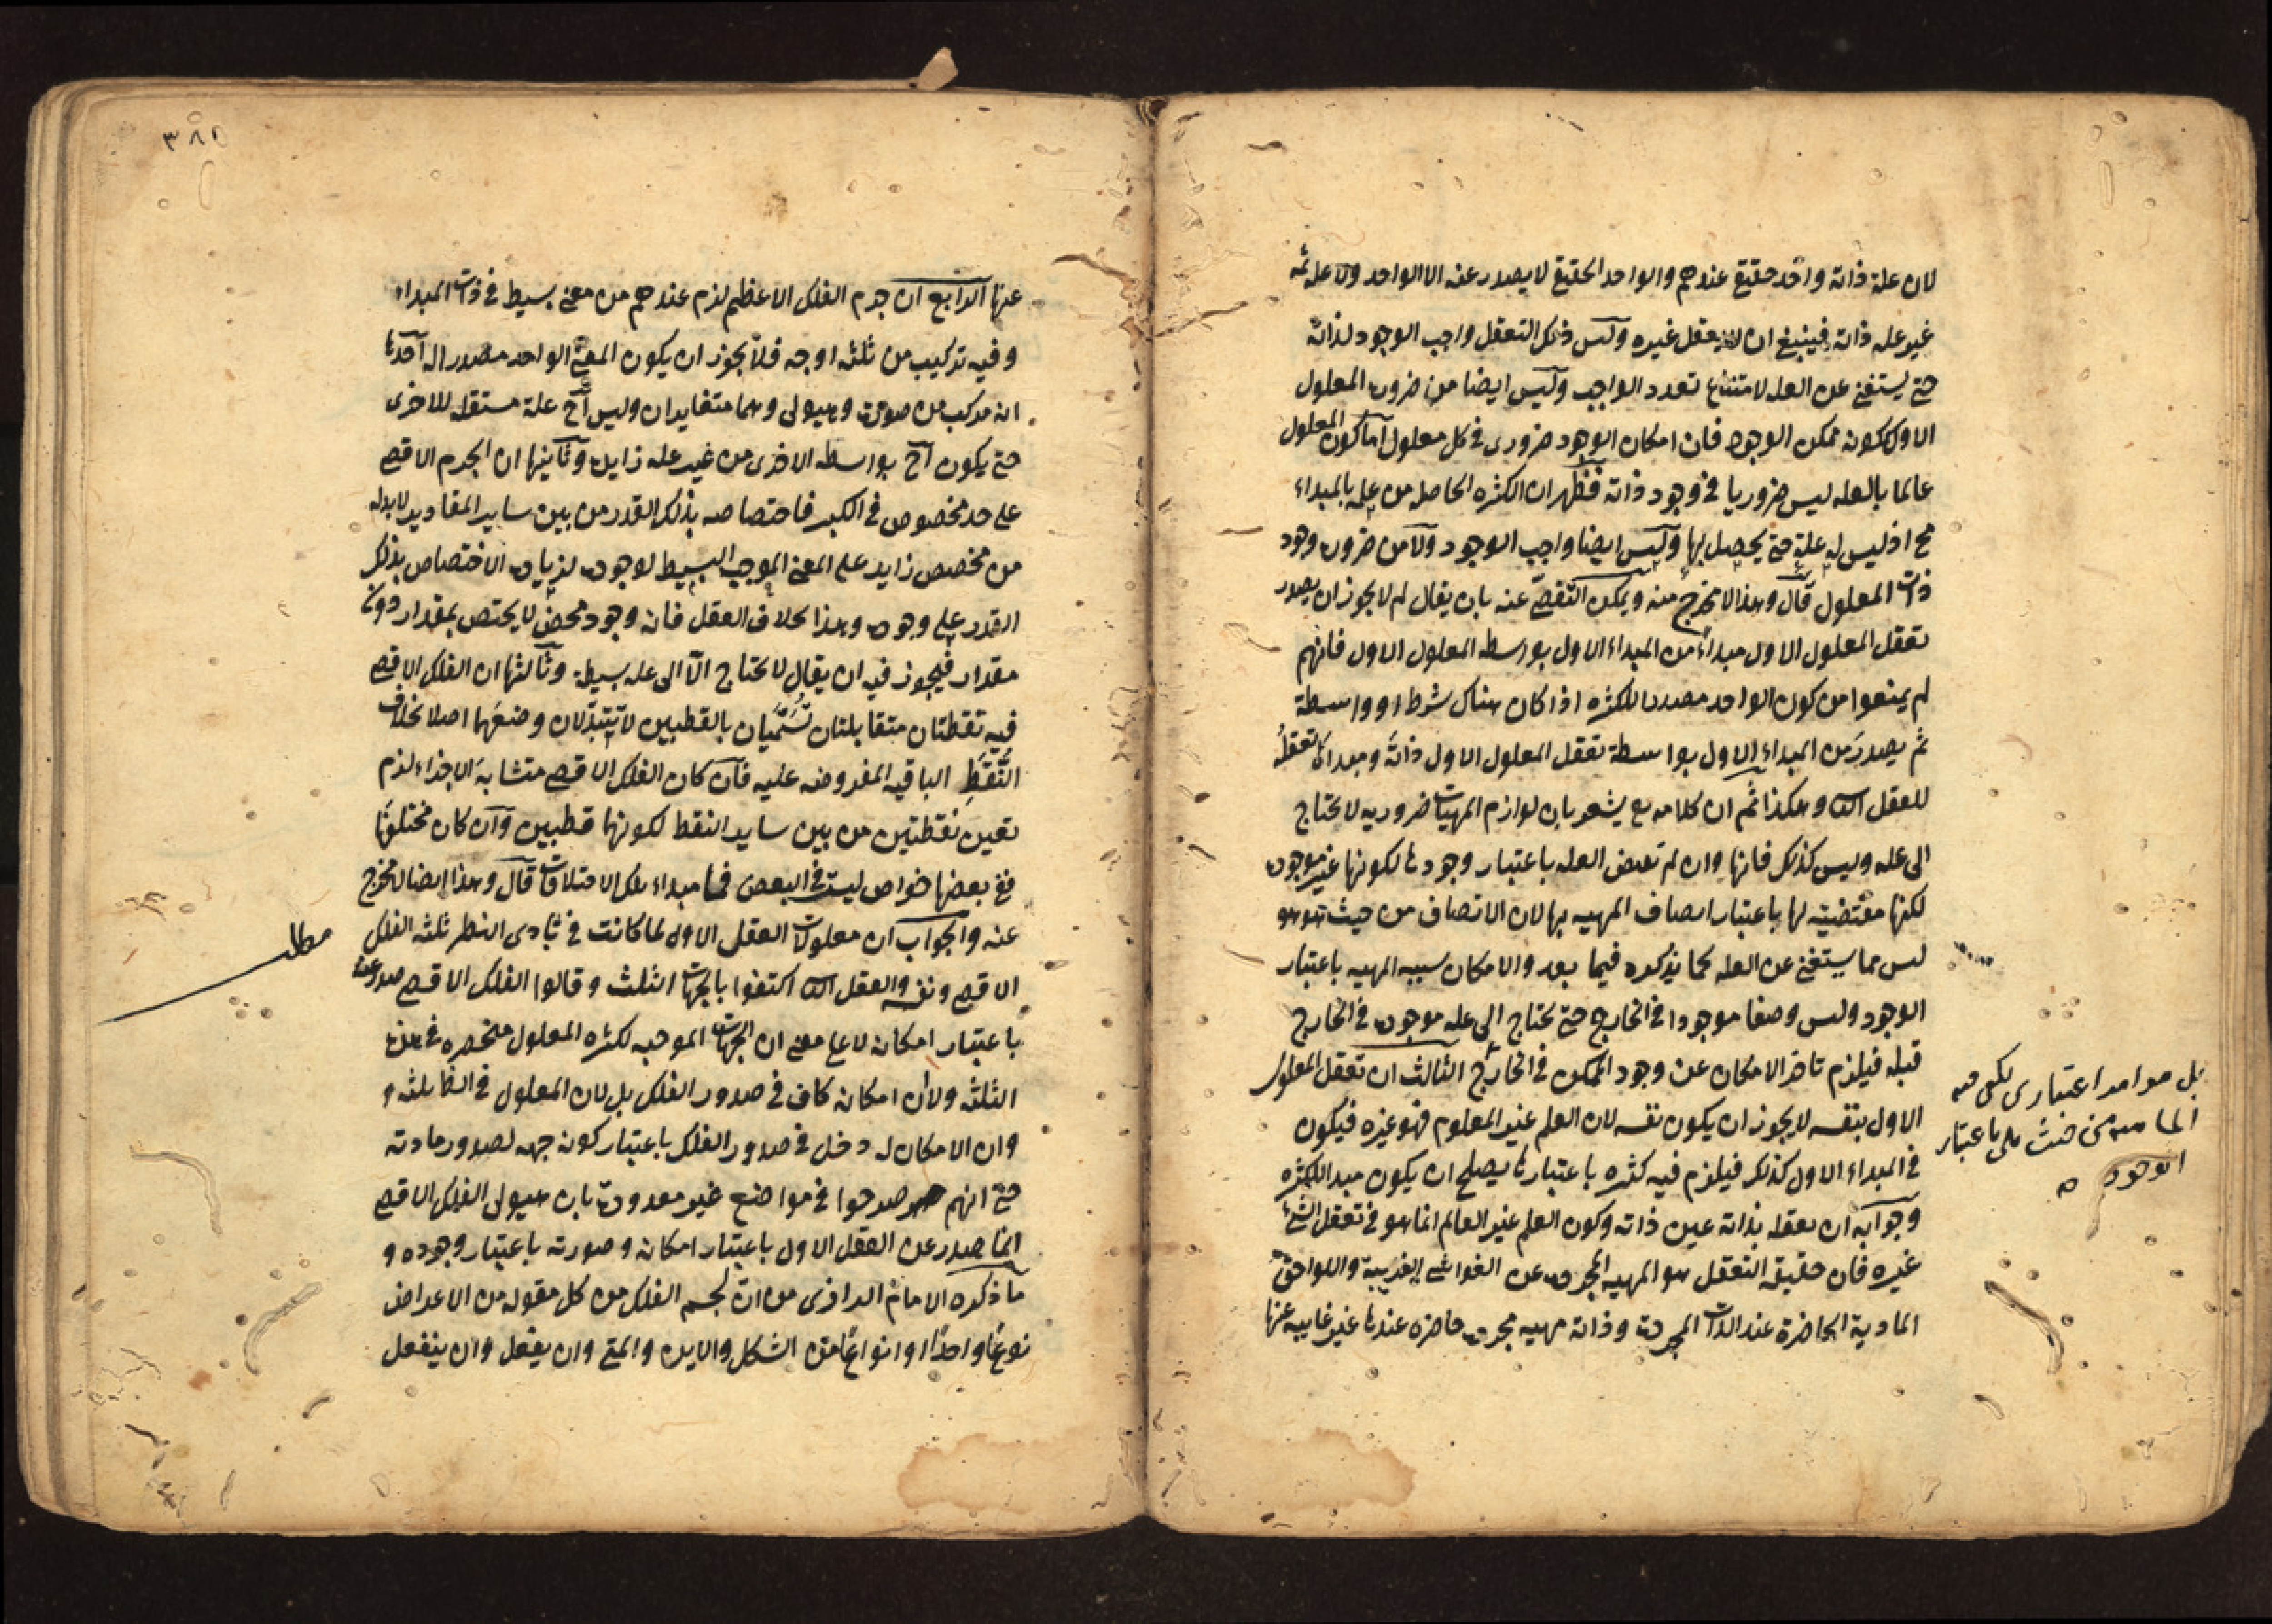 لان علة ذاته واحد حقيقي عندهم والواحد الحقيقي لا يصدر عنه الا الواحد ولا علة ثمه
غير علة ذاته فينبغي ان لا يعقل غيره وليس ذلك التعقل واجب الوجود لذاته
حتى يستغني عن العله لامتناع تعدد الواجب وليس ايضا من ضرورة المعلول
الاول ككونه ممكن الوجود فان امكان الوجود ضروري في كل معلول اما كون المعلول
عالما بالعله ليس ضروريا في وجود ذاته فظهر ان الكثره الحاصله من علمه بالمبداء
مح اذ ليس له علة حتى يحصل بها وليس ايضا واجب الوجود ولا من ضرورة وجود
ذات المعلول قال وهذا لا مخرج منه ويمكن التفصي عنه بان يقال لم لا يجوز ان يصدر
تعقل المعلول الاول مبداءه من المبداء الاول بواسطه المعلول الاول فانهم
لم يمنعوا من كون الواحد مصدرا للكثره اذا كان هناك شرط او واسطة
ثم يصدر من المبداء الاول بواسطة تعقل المعلول الاول ذاته ومبداءه تعقله
للعقل الثاني وهكذا ثم ان كلامه مع يشعر بان لوازم المهيات ضروريه لا تحتاج
الى عله وليس كذلك فانها وان لم تقتض العله باعتبار وجودها لكونها غير موجودة
لكنها مقتضية لها باعتبار اتصاف المهيه بها لان الاتصاف من حيث هو هو
ليس مما يستغني عن العله كما يذكره فيما بعد والامكان سببه المهيه باعتبار
الوجود وليس وصفا موجودا في الخارج حتى يحتاج الى عله موجودة في الخارج
قبله فيلزم تاخر الامكان عن وجود الممكن في الخارج الثالث ان تعقل المعلول
الاول بنفسه لا يجوز ان يكون نفسه لان العلم غير المعلوم فهو غيره فيكون
في المبداء الاول كذلك فيلزم فيه كثره باعتبارها يصلح ان يكون مبدا للكثره
وجوابه ان تعقله بذاته عين ذاته وكون العلم غير العالم انما هو في تعقل الشئ
غيره فان حقيقة التعقل هو المهيه المجردة عن الغواشي الغريبة واللواحق
المادية الحاضرة عند الذات المجردة وذاته مهيه مجردة حاضره عندها غير غايبه عنها
بل هو امر اعتباري
باعتبار
الوجود
٣٨٥
عنها الرابع ان جرم الفلك الاعظم لزم عندهم من معنى بسيط في ذات المبداء
وفيه تركيب من ثلثه اوجه فلا يجوز ان يكون المعنى الواحد مصدرا له احدها
انه مركب من صورة وهيولى وهما متغايران وليس احد علة مستقله للاخرى
حتى يكون احد بواسطه الاخرى من غير عله زايدة وثانيها ان الجرم الاقصى
على حد مخصوص في الكبر فاختصاصه بذلك القدر من بين ساير المقادير لا بد له
من مخصص زايد على المعنى الموجب البسيط لوجوده لزيادة الاختصاص بذلك
القدر على وجوده وهذا بخلاف العقل فانه وجود محض لا يختص بمقدار دون
مقدار فيجوز فيه ان يقال لا يحتاج الا الى علة بسيطة وثالثها ان الفلك الاقصى
فيه نقطتان متقابلتان تسميان بالقطبين لا تتبدلان وضعهما اصلا بخلاف
النقط الباقيه المفروضه عليه فان كان الفلك الاقصى متشابه الاجزاء لزم
تعين نقطتين من بين ساير النقط لكونها قطبين وان كان مختلفها
ففي بعضها خواص ليست في البعض فما مبداء تلك الاختلافات قال وهذا ايضا لا مخرج
عنه والجواب ان معلولات العقل الاول لما كانت في بادى النظر ثلثه الفلك
الاقصى ونفسه والعقل الثاني اكتفوا بالجهات الثلث وقالوا الفلك الاقصى صدر عنه
باعتبار امكانه لا على معنى ان الجهات الموجبه لكثره المعلول منحصره في هذه
الثلثه ولا ان امكانه كاف في صدور الفلك بل لان المعلول في الظاهر ثلثه و
وان الامكان له دخل في صدور الفلك باعتبار كونه جهه لصدور مادته
حتى انهم صرحوا في مواضع غير معدودة بان هيولى الفلك الاقصى
انما صدر عن العقل الاول باعتبار امكانه وصورته باعتبار وجوده و
ما ذكره الامام الرازى من ان لجسم الفلك من كل مقوله من الاعراض
نوعا واحدا او انواعا منه الشكل والاين والمتى وان يفعل وان ينفعل
مطلب